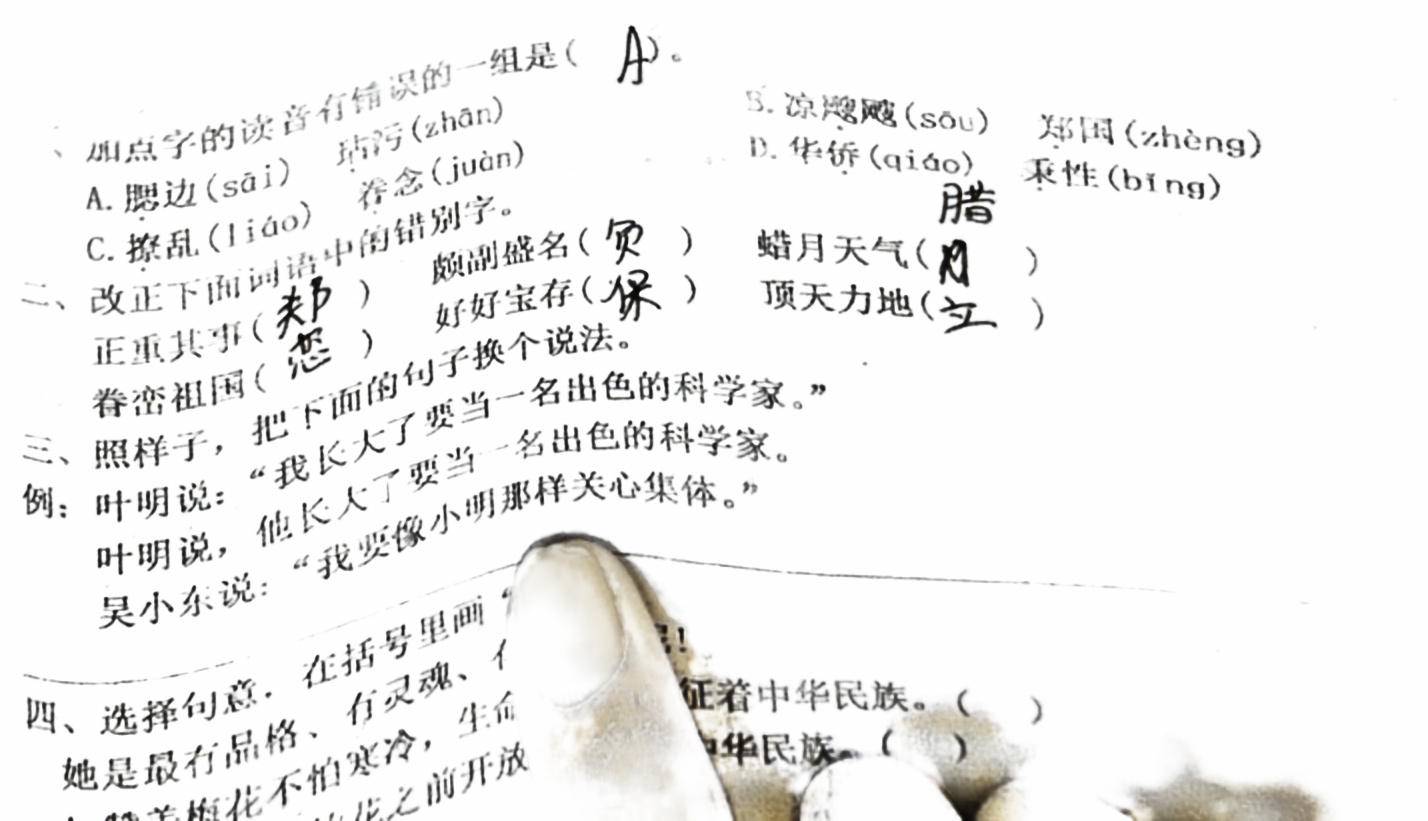 、加点字的读音有错误的一组是( A )。
A.腮边(sāi) 玷污(zhān) B.凉飕飕(sōu) 郑国(zhèng)
C.撩乱(liáo) 眷念(juàn) D.华侨(qiáo) 秉性(bǐng)
二、改正下面词语中的错别字。
腊
正重其事( 郑 ) 颇副盛名( 负 ) 蜡月天气( )
眷峦祖国( 恋 ) 好好宝存( 保 ) 顶天力地( 立 )
三、照样子，把下面的句子换个说法。
例：叶明说：“我长大了要当一名出色的科学家。”
叶明说，他长大了要当一名出色的科学家。
吴小东说：“我要像小明那样关心集体。”
四、选择句意，在括号里画“
她是最有品格、有灵魂、 征着中华民族。( )
梅花不怕寒冷，生命 中华民族。( )
花之前开放